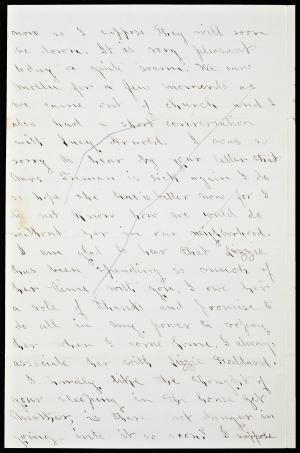 now so I suppose they will soon
be down. It is very pleasant
today & quite warm. We saw
Mollie for a few moments as
we came out of church and I
also had a short conversation
with Lucy Arnold. I was so
sorry to hear by your letter that
Mrs. Truman is sick again I do
so hope she has better now for I
do not know how we could do
without her in our neighborhood.
I am glad to hear that Lizzie
has been spending so much of
her time with you, I owe her
a vote of thanks and promise to
do all in my power to repay
her when I come home. I always
associate her with Lizzie Goddard.
I hardly like the thought of
your sleeping in the house yet
Mother, is there not danger in
going into it so soon? I suppose